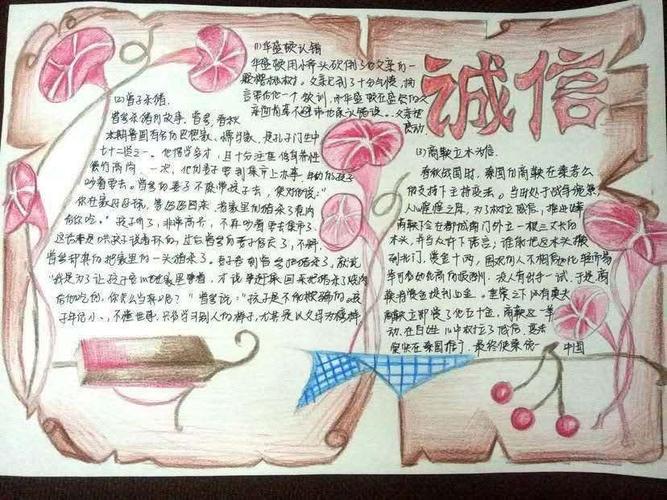 诚信
(1)华盛顿认错
华盛顿用小斧头砍倒了他父亲的一
棵樱桃树。父亲见到了十分气愤,扬
言要给他一个教训。而华盛顿在盛怒的父
亲面前毫不避讳地承认错误。父亲被
感动
四曾子杀猪
曾参杀猪的故事 曾参,春秋
末期鲁国有名的思想家、儒学家,是孔子门生中
七十二贤之一。他博学多才,且十分注重
德行高尚。一次,他的妻子要到集市上办事,年幼的孩子
吵着要去。曾参的妻子不愿带孩子去,便对他说:“
你在家好好玩,等妈妈回来,将家里的猪杀了煮肉
给你吃。”孩子听了,非常高兴,不再吵着要去集市了。
这话本是哄孩子说着玩的,过后曾参的妻子便忘了,不料,
曾参却真的把家里的一头猪杀了。妻子看到曾参把猪杀了,就说
“我是为了让孩子安心地在家里等着,才说等赶集回来把猪杀了烧肉
给他吃的,你怎么当真呢?”曾参说:“孩子是不能欺骗的。孩
子年纪小,不懂世事,只得学习别人的样子,尤其是以父母为榜样
(2)商鞅立木为信
春秋战国时,秦国的商鞅在秦孝公
的支持下主持变法。当时处于战争频繁、
人心惶惶之际,为了树立威信,推进改革
商鞅下令在都城南门外立一根三丈长的
木头,并当众许下诺言:谁能把这木头搬
到北门,赏金十两。围观的人不相信如此轻而易
举的事能得到如此高的赏赐,没人肯出手一试。于是,商
鞅将赏金提到五十金。重赏之下必有勇夫
商鞅立即赏了他五十金。商鞅这一举
动,在百姓心中树立了威信,变法
很快在秦国推广,最终使秦统一
中国